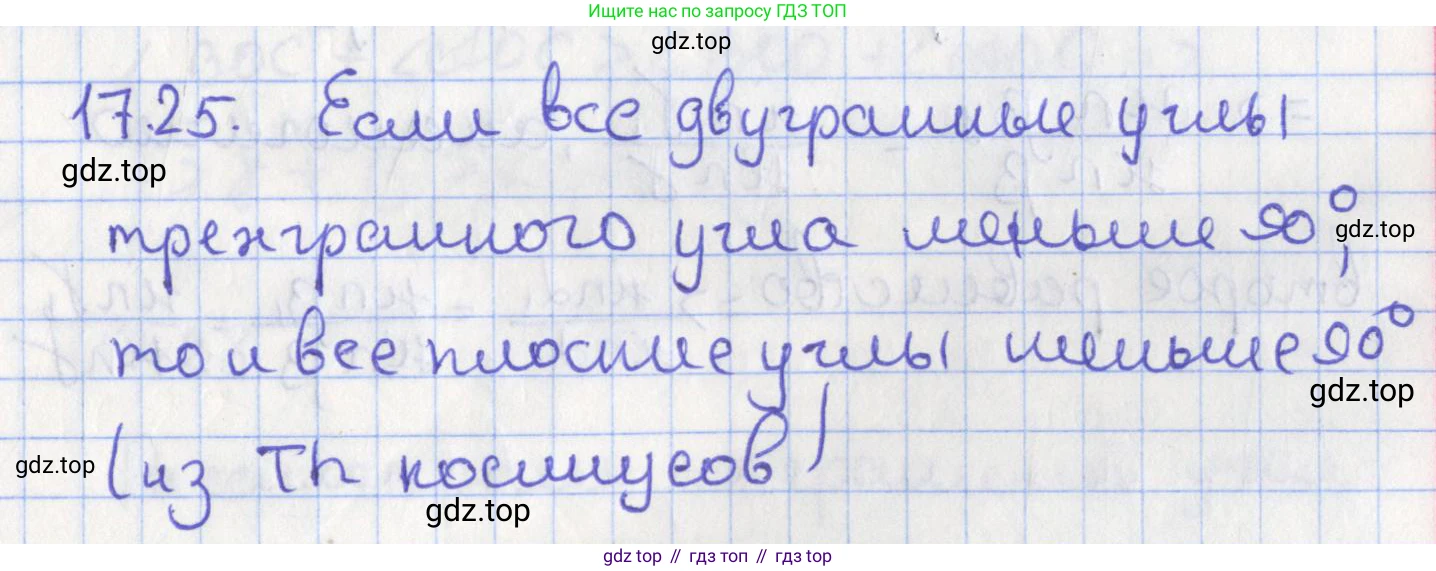 Ищите нас по запросу ГДЗ ТОП
gdz.top
17.25. Если все двугранные углы
gdz.top
трехгранного угла меньше 90°,
gdz.top
то и все плоские углы меньше 90°
gdz.top
(из Th косинусов)
gdz.top
gdz.top
gdz top // гдз топ // gdz.top